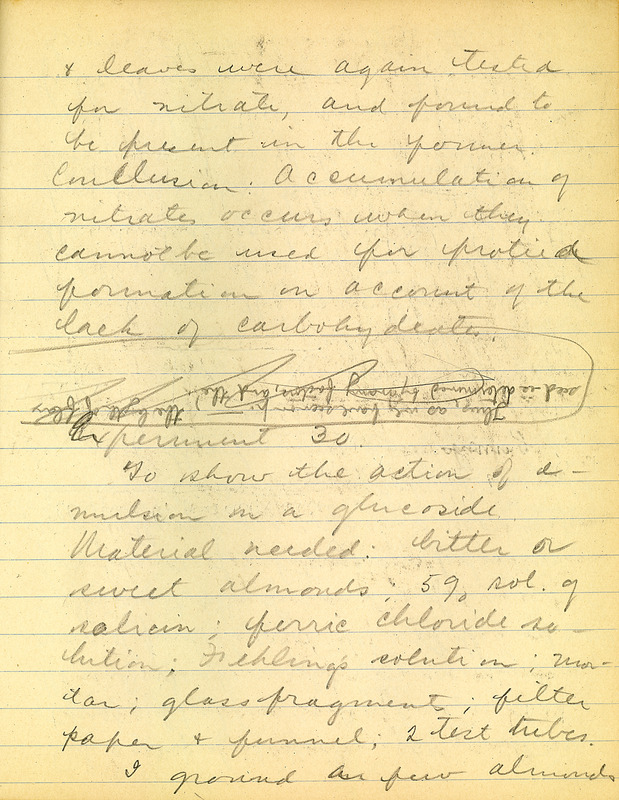 & leaves were again tested
for nitrate, and found to
be present in the former.
Conclusion: Accumulation of
nitrates occurs when they
cannot be used for protied
formation on account of the
lack of carbohydrates.
Thus, as we have seen in the light of
and is determined by many factors, and the
Experiment 30
To show the action of e-
mulsion on a glucoside.
Material needed: bitter or
sweet almonds; 5% sol. of
salicin; ferric chloride so-
lution; Fehlings solution; mor-
tar; glass fragments; filter
paper & funnel; 2 test tubes.
I ground a few almonds